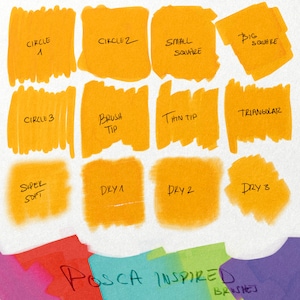 CIRCLE
1
CIRCLE 2
SMALL
SQUARE
BIG
SQUARE
CIRCLE 3
BRUSH
TIP
THIN TIP
TRIANGULAR
SUPER
SOFT
DRY 1
DRY 2
DRY 3
POSCA INSPIRED
BRUSHES